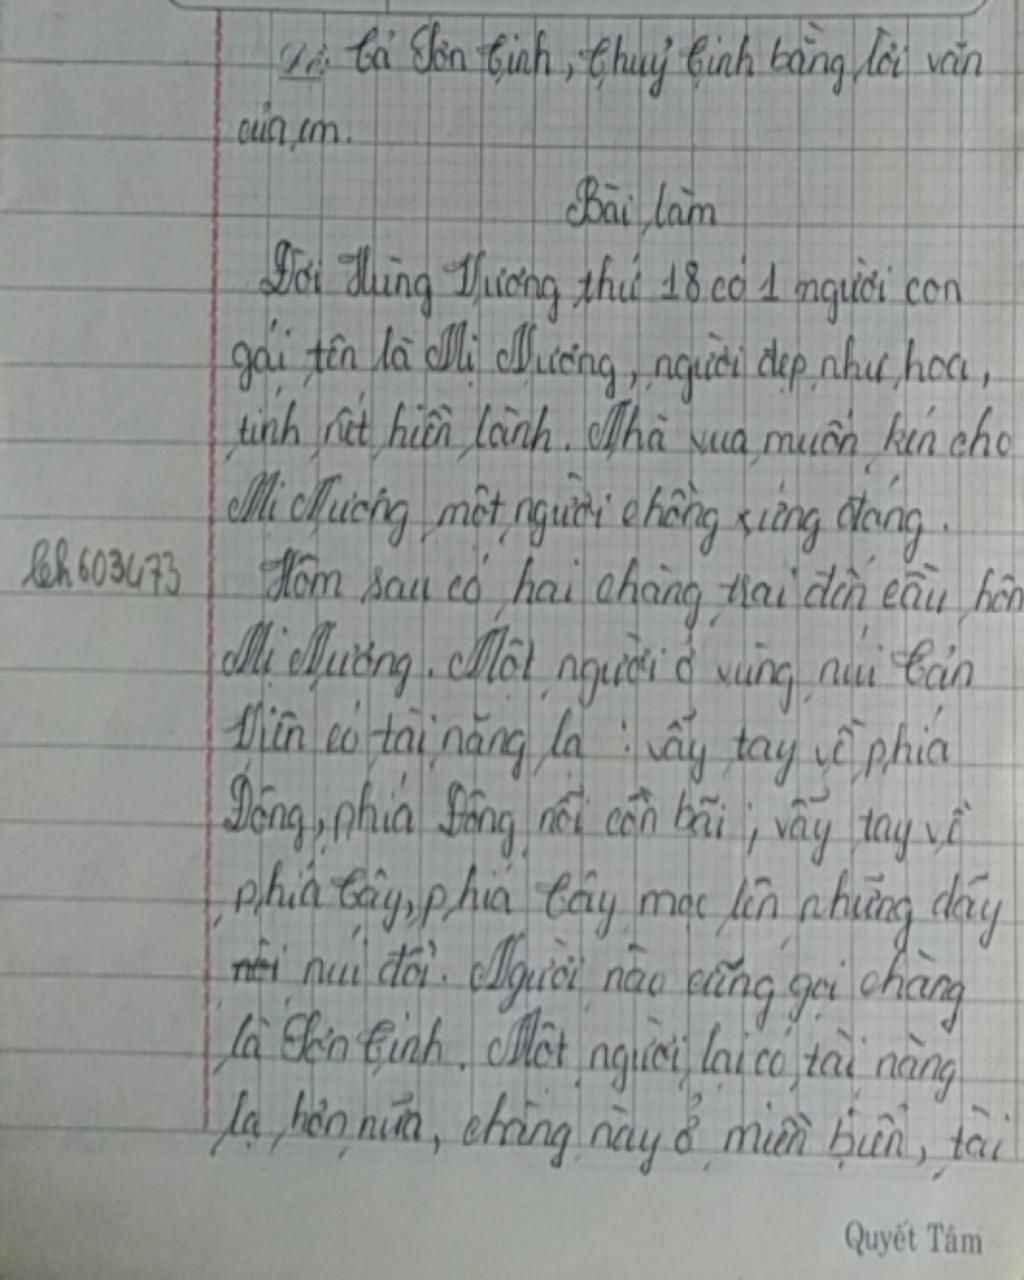 tả Sơn Tinh, Thuỷ Tinh bằng lời văn
của em.
Bài làm
Đời Hùng Vương thứ 18 có 1 người con
gái tên là Mị Nương, người đẹp như hoa,
tính rất hiền lành. Nhà vua muốn kén cho
Mị Nương một người chồng xứng đáng.
Hôm sau có hai chàng trai đến cầu hôn
Mị Nương. Một người ở vùng núi Tản
Viên có tài năng lạ : vẫy tay về phía
Đông, phía Đông nổi cồn bãi ; vẫy tay về
phía Tây, phía Tây mọc lên những dãy
núi đồi. Người nào cũng gọi chàng
là Sơn Tinh. Một người lại có tài năng
lạ hơn nữa, chàng này ở miền biển, tài
Quyết Tâm